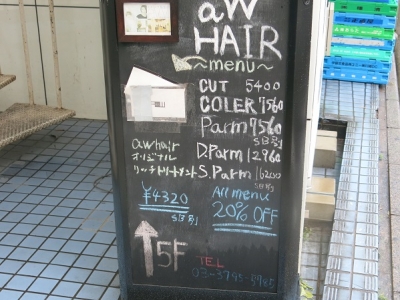 aw
HAIR
~menu~
CUT 5400
COLER 7560
Parm 7560
SB別
D.Parm 12960
S.Parm 16200
SB別
awhair
オリジナル
リッチトリートメント
¥4320
SB別
All menu
20% OFF
5F
TEL